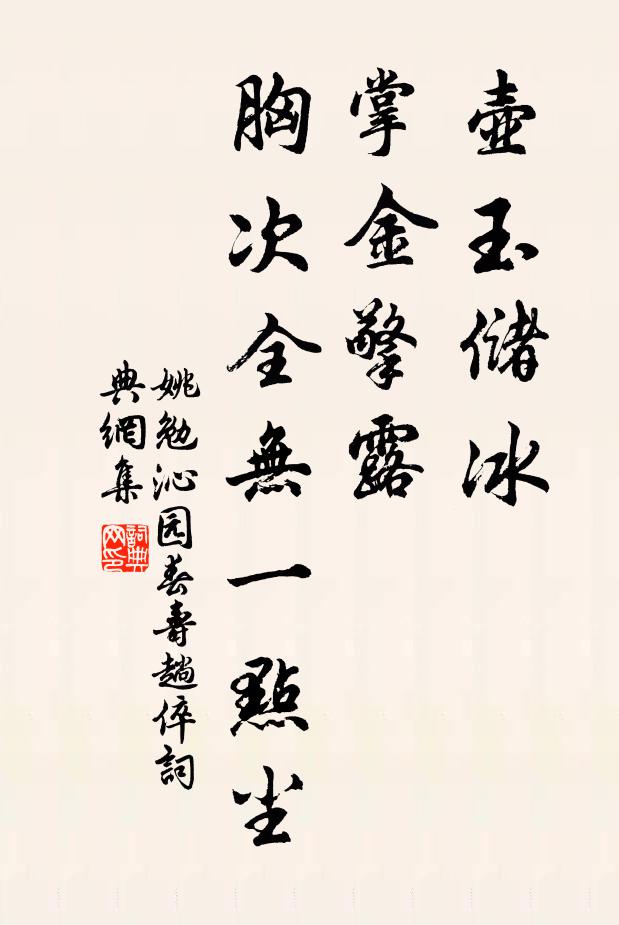 壺玉儲冰
掌金擎露
胸次全無一點尘
姚勉沁园春壽趙倅詞
典網集
詞典网印